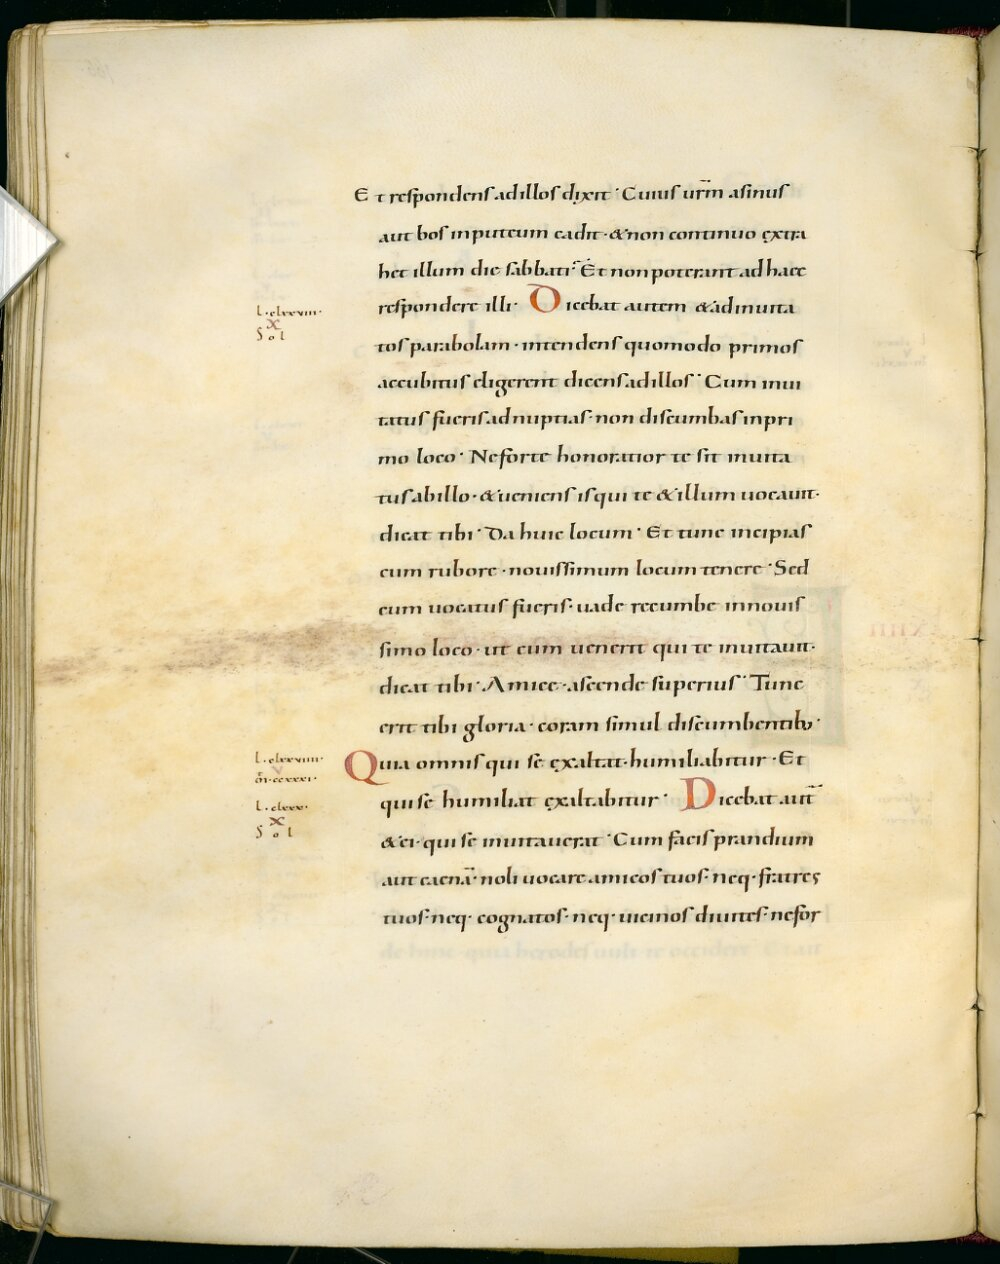 Et respondens ad illos dixit · Cuius urm̄ asinus
aut bos in puteum cadit · & non continuo extra
het illum die sabbati · Et non poterant ad haec
respondere illi · Dicebat autem & ad inuita
L · clxxviii ·
X
Sol
tos parabolam · intendens quomodo primos
accubitus eligerent dicens ad illos · Cum inui
tatus fueris ad nuptias · non discumbas in pri
mo loco · Ne forte honoratior te sit inuita
tus ab illo · & ueniens is qui te & illum uocauit ·
dicat tibi · Da huic locum · Et tunc incipias
cum rubore · nouissimum locum tenere · Sed
cum uocatus fueris · uade recumbe in nouis
simo loco · ut cum uenerit qui te inuitauit ·
dicat tibi · Amice · ascende superius · Tunc
erit tibi gloria · coram simul discumbentib; ·
L · clxxviiii ·
m̄ · ccxxxi ·
Quia omnis qui se exaltat · humiliabitur · Et
qui se humiliat exaltabitur · Dicebat aut̄
L · clxxx ·
X
Sol
& ei · qui se inuitauerat · Cum facis prandium
aut caenā · noli uocare amicos tuos · neq · fratres
tuos · neq · cognatos · neq · uicinos diuites · ne for